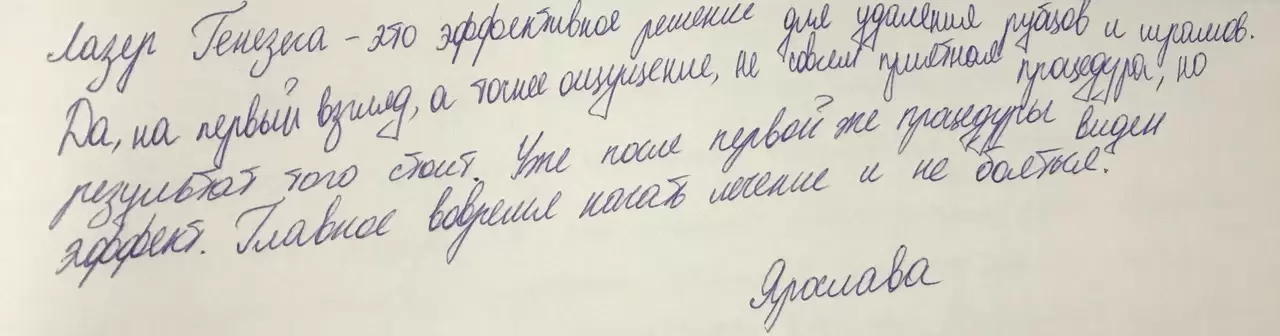 Лазер Генезеса - это эффективное решение для удаления рубцов и шрамов.
Да, на первый взгляд, а точнее ощущение, не совсем приятная процедура, но
результат того стоит. Уже после первой же процедуры виден
эффект. Главное вовремя начать лечение и не бояться.
Ярослава